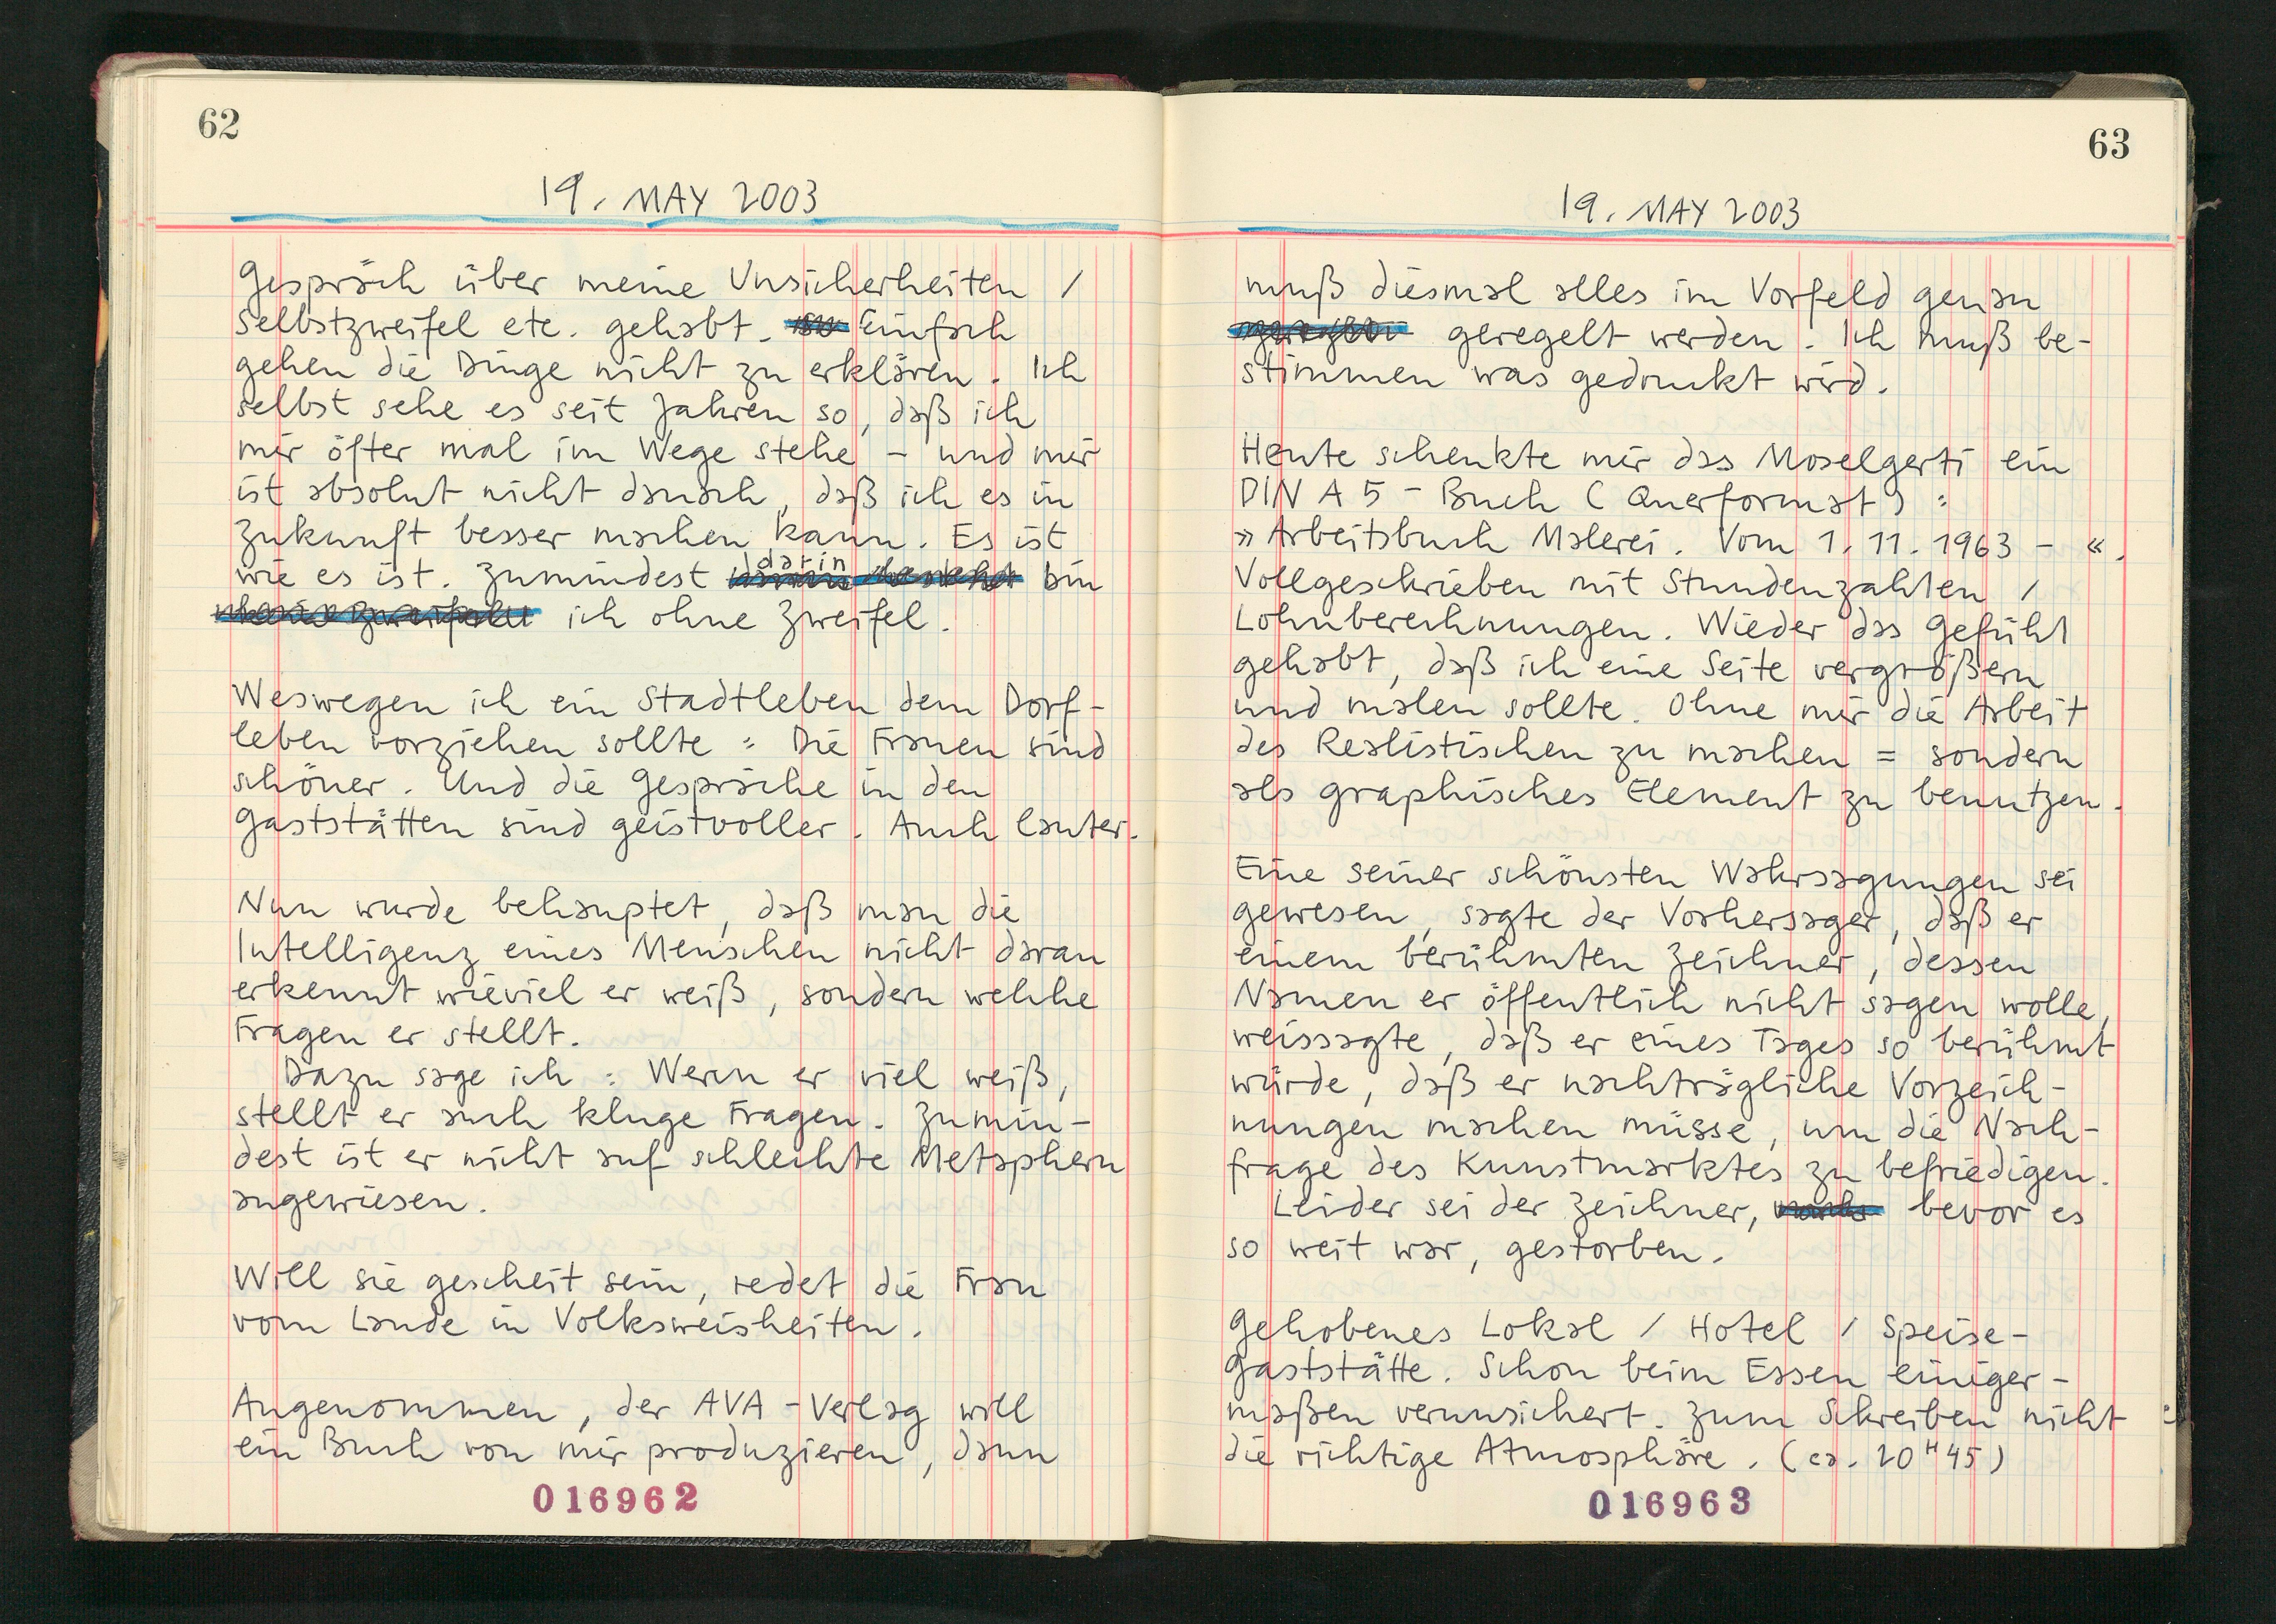 62
19. MAY 2003
Gespräch über meine Unsicherheiten /
Selbstzweifel etc. gehabt. Einfach
gehen die Dinge nicht zu erklären. Ich
selbst sehe es seit Jahren so, daß ich
mir öfter mal im Wege stehe – und mir
ist absolut nicht danach, daß ich es in
Zukunft besser machen kann. Es ist
wie es ist. Zumindest darin bin
ich ohne Zweifel.
Weswegen ich ein Stadtleben dem Dorf-
leben vorziehen sollte : Die Frauen sind
schöner. Und die Gespräche in den
Gaststätten sind geistvoller. Auch lauter.
Nun wurde behauptet, daß man die
Intelligenz eines Menschen nicht daran
erkennt wieviel er weiß, sondern welche
Fragen er stellt.
Dazu sage ich : Wenn er viel weiß,
stellt er auch kluge Fragen. Zumin-
dest ist er nicht auf schlechte Metaphern
angewiesen.
Will sie gescheit sein, redet die Frau
vom Lande in Volksweisheiten.
Angenommen, der AVA-Verlag will
ein Buch von mir produzieren, dann
016962
63
19. MAY 2003
muß diesmal alles im Vorfeld genau
geregelt werden. Ich muß be-
stimmen was gedruckt wird.
Heute schenkte mir das Moselgerti ein
DIN A 5 – Buch (Querformat) :
» Arbeitsbuch Malerei. Vom 1. 11. 1963 – «.
Vollgeschrieben mit Stundenzahlen /
Lohnberechnungen. Wieder das Gefühl
gehabt, daß ich eine Seite vergrößern
und malen sollte. Ohne mir die Arbeit
des Realistischen zu machen = sondern
als graphisches Element zu benutzen.
Eine seiner schönsten Wahrsagungen sei
gewesen, sagte der Vorhersager, daß er
einem berühmten Zeichner, dessen
Namen er öffentlich nicht sagen wolle,
weissagte, daß er eines Tages so berühmt
würde, daß er nachträgliche Vorzeich-
nungen machen müsse, um die Nach-
frage des Kunstmarktes zu befriedigen.
Leider sei der Zeichner, bevor es
so weit war, gestorben.
Gehobenes Lokal / Hotel / Speise-
gaststätte. Schon beim Essen einiger-
maßen verunsichert. Zum Schreiben nicht
die richtige Atmosphäre. (ca. 20ᴴ45)
016963